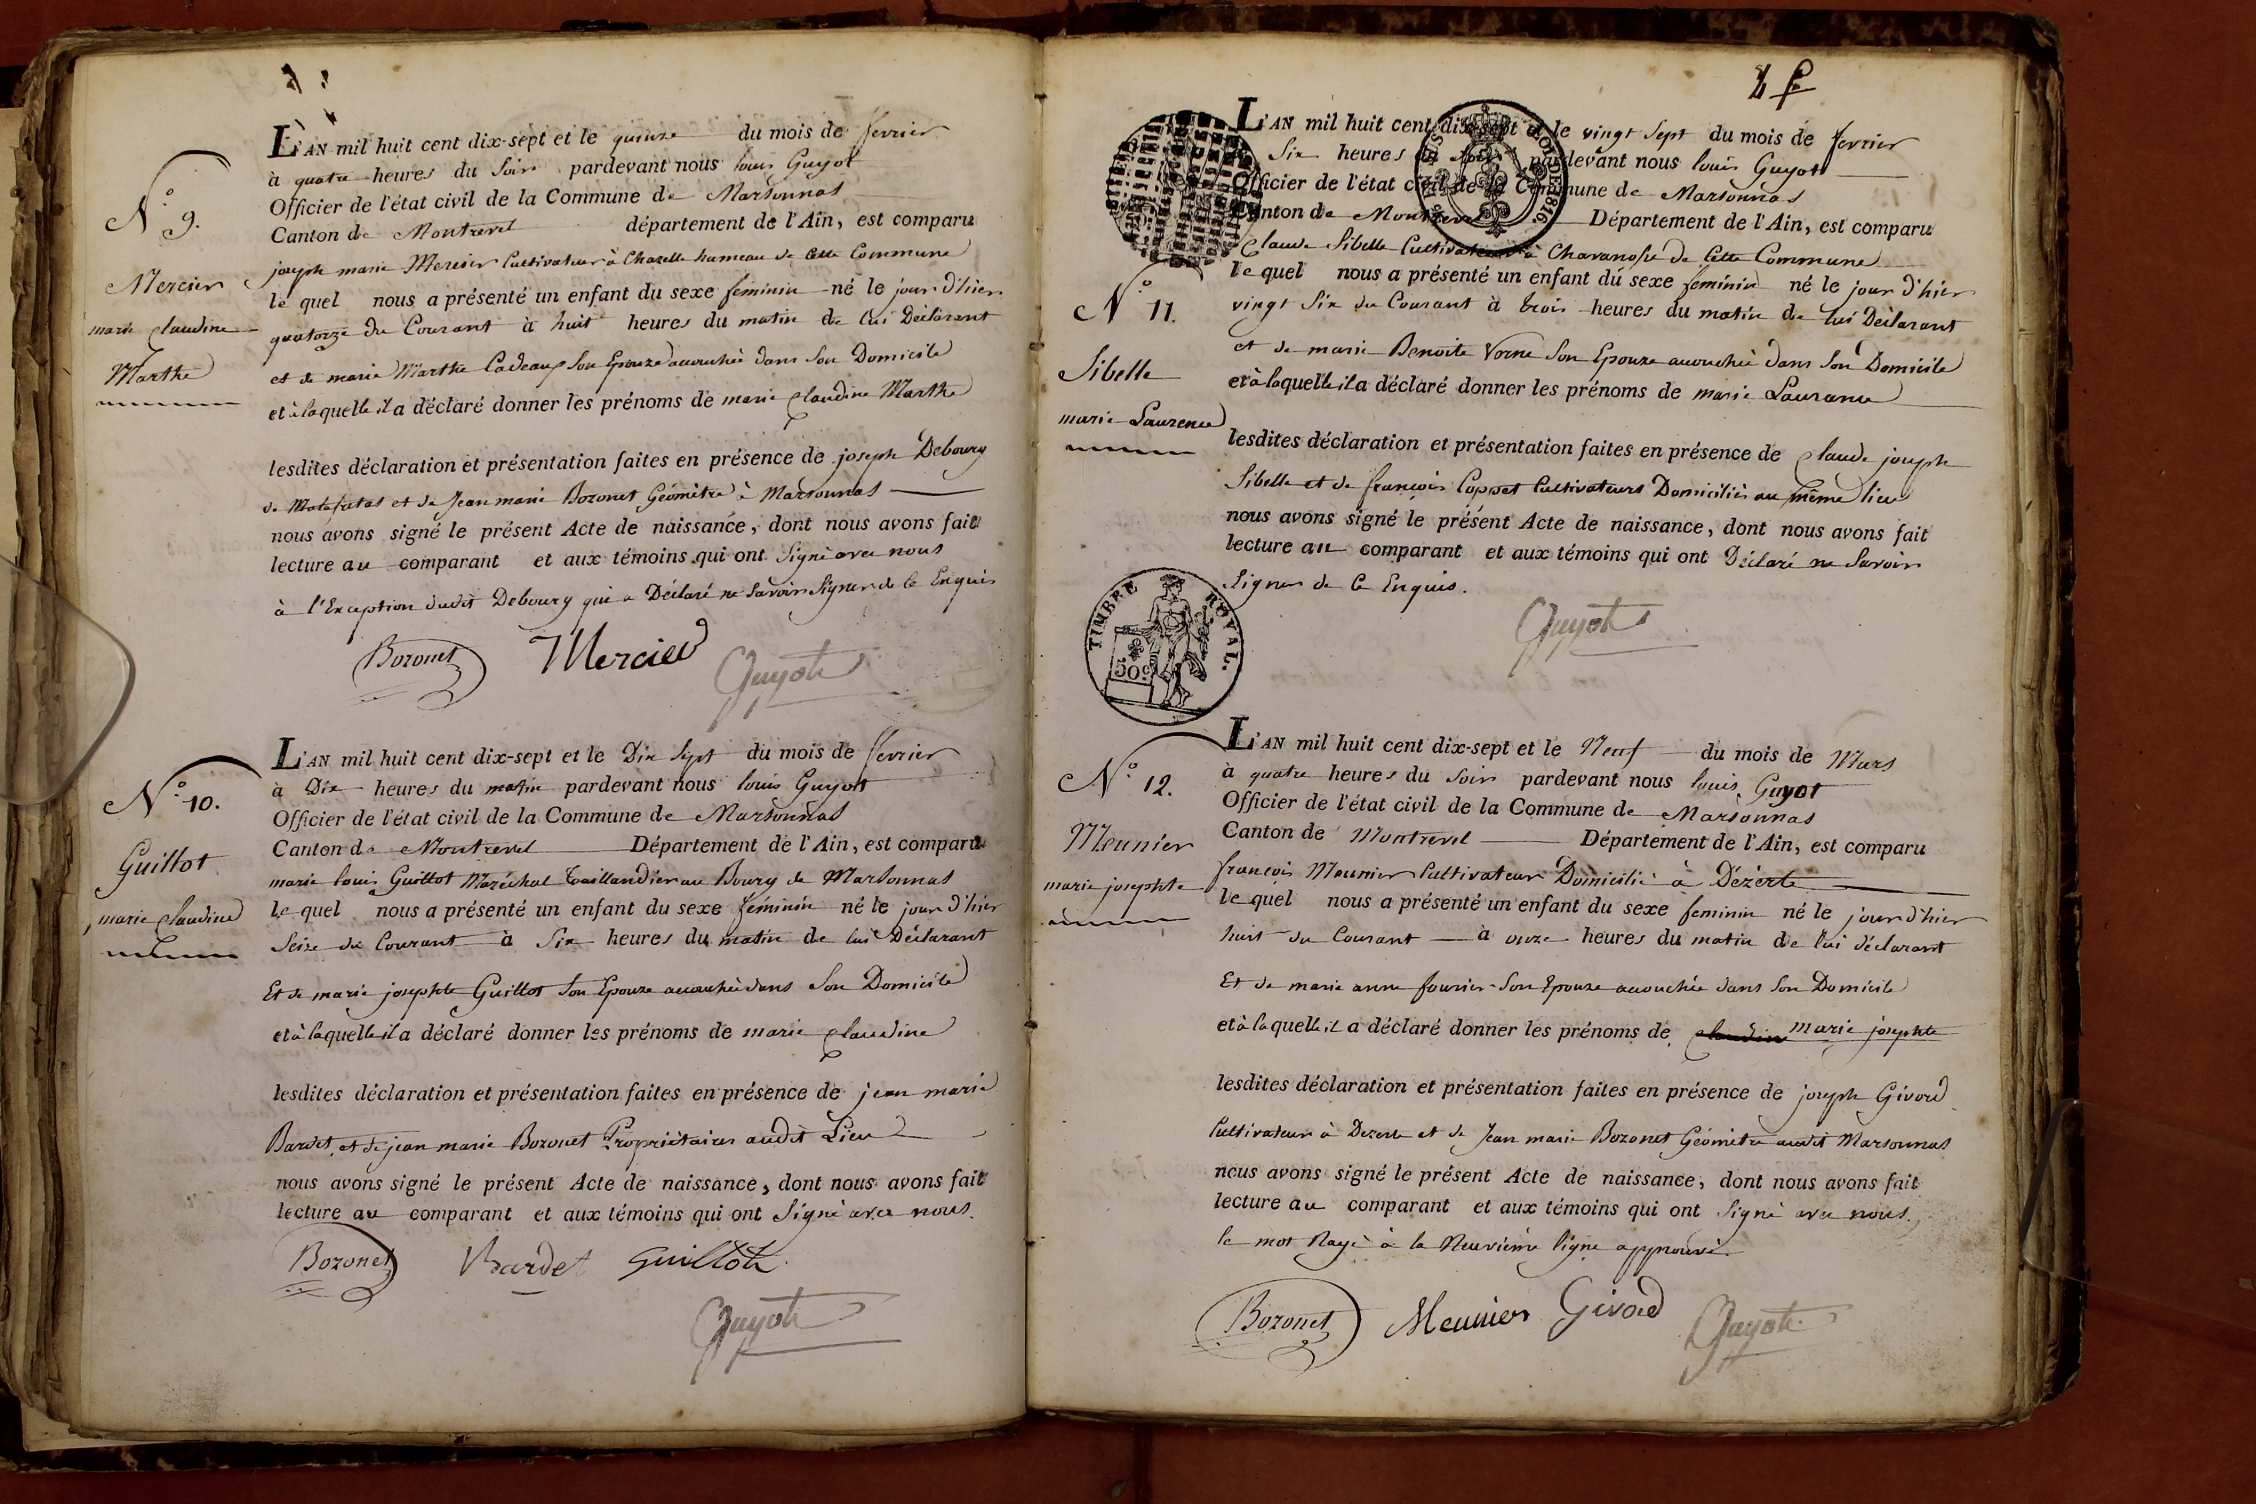 N° 9.
Mercier
marie Claudine
Marthe
L'AN mil huit cent dix-sept et le quinze du mois de fevrier
à quatre heures du Soir pardevant nous louis Guyot
Officier de l'état civil de la Commune de Marsonnas
Canton de Montrevel département de l'Ain, est comparu
joseph marie Mercier Cultivateur à Chazelle hameau de Cette Commune
le quel nous a présenté un enfant du sexe féminin né le jour d'hier
quatorze du Courant à huit heures du matin de lui Déclarant
et de marie Marthe Cadeaux Son Epouze accouchée dans Son Domicile
et à laquelle il a déclaré donner les prénoms de marie Claudine Marthe
lesdites déclaration et présentation faites en présence de joseph Debourg
de Matefatas et de Jean marie Bozonet Géomètre à Marsonnas
nous avons signé le présent Acte de naissance, dont nous avons fait
lecture au comparant et aux témoins qui ont Signé avec nous
à l'Exception dudit Debourg qui a Déclaré ne Savoir Signer de Ce Enquis
Bozonet Mercier Guyot
N° 10.
Guillot
marie Claudine
L'AN mil huit cent dix-sept et le Dix Sept du mois de fevrier
à Dix heures du matin pardevant nous louis Guyot
Officier de l'état civil de la Commune de Marsonnas
Canton de Montrevel Département de l'Ain, est comparu
marie louis Guillot Maréchal Taillandier au Bourg de Marsonnas
le quel nous a présenté un enfant du sexe féminin né le jour d'hier
Seize du Courant à Six heures du matin de lui Déclarant
Et de marie josephte Guillot Son Epouze accouchée dans Son Domicile
et à laquelle il a déclaré donner les prénoms de marie Claudine
lesdites déclaration et présentation faites en présence de jean marie
Bardet et de jean marie Bozonet Propriétaires audit Lieu
nous avons signé le présent Acte de naissance, dont nous avons fait
lecture au comparant et aux témoins qui ont Signé avec nous.
Bozonet Bardet Guillot
Guyot
N° 11.
Sibelle
marie Laurence
L'AN mil huit cent dix-sept et le vingt Sept du mois de fevrier
à Six heures du Soir pardevant nous louis Guyot
Officier de l'état civil de la Commune de Marsonnas
Canton de Montrevel Département de l'Ain, est comparu
Claude Sibelle Cultivateur à Charanosse de Cette Commune
le quel nous a présenté un enfant du sexe feminin né le jour d'hier
vingt Six du Courant à trois heures du matin de lui Déclarant
et de marie Benoite Vorne Son Epouze accouchée dans Son Domicile
et à laquelle il a déclaré donner les prénoms de marie Laurance
lesdites déclaration et présentation faites en présence de Claude joseph
Sibelle et de françois Coppet Cultivateurs Domiciliés au même lieu
nous avons signé le présent Acte de naissance, dont nous avons fait
lecture au comparant et aux témoins qui ont Déclaré ne Savoir
Signer de Ce Enquis.
TIMBRE ROYAL.
50c
Guyot
N° 12.
Meunier
marie josephte
L'AN mil huit cent dix-sept et le Neuf du mois de Mars
à quatre heures du Soir pardevant nous louis Guyot
Officier de l'état civil de la Commune de Marsonnas
Canton de Montrevel Département de l'Ain, est comparu
françois Meunier Cultivateur Domicilié à Dézerte
le quel nous a présenté un enfant du sexe feminin né le jour d'hier
huit du Courant à onze heures du matin de lui déclarant
Et de marie anne fournier Son Epouze accouchée dans Son Domicile
et à laquelle il a déclaré donner les prénoms de Claudine marie josephte
lesdites déclaration et présentation faites en présence de joseph Givord
Cultivateur à Dezerte et de Jean marie Bozonet Géomètre audit Marsonnas
nous avons signé le présent Acte de naissance, dont nous avons fait
lecture au comparant et aux témoins qui ont Signé avec nous.
le mot Rayé à la Neuvième ligne approuvé.
Bozonet Meunier Givord Guyot